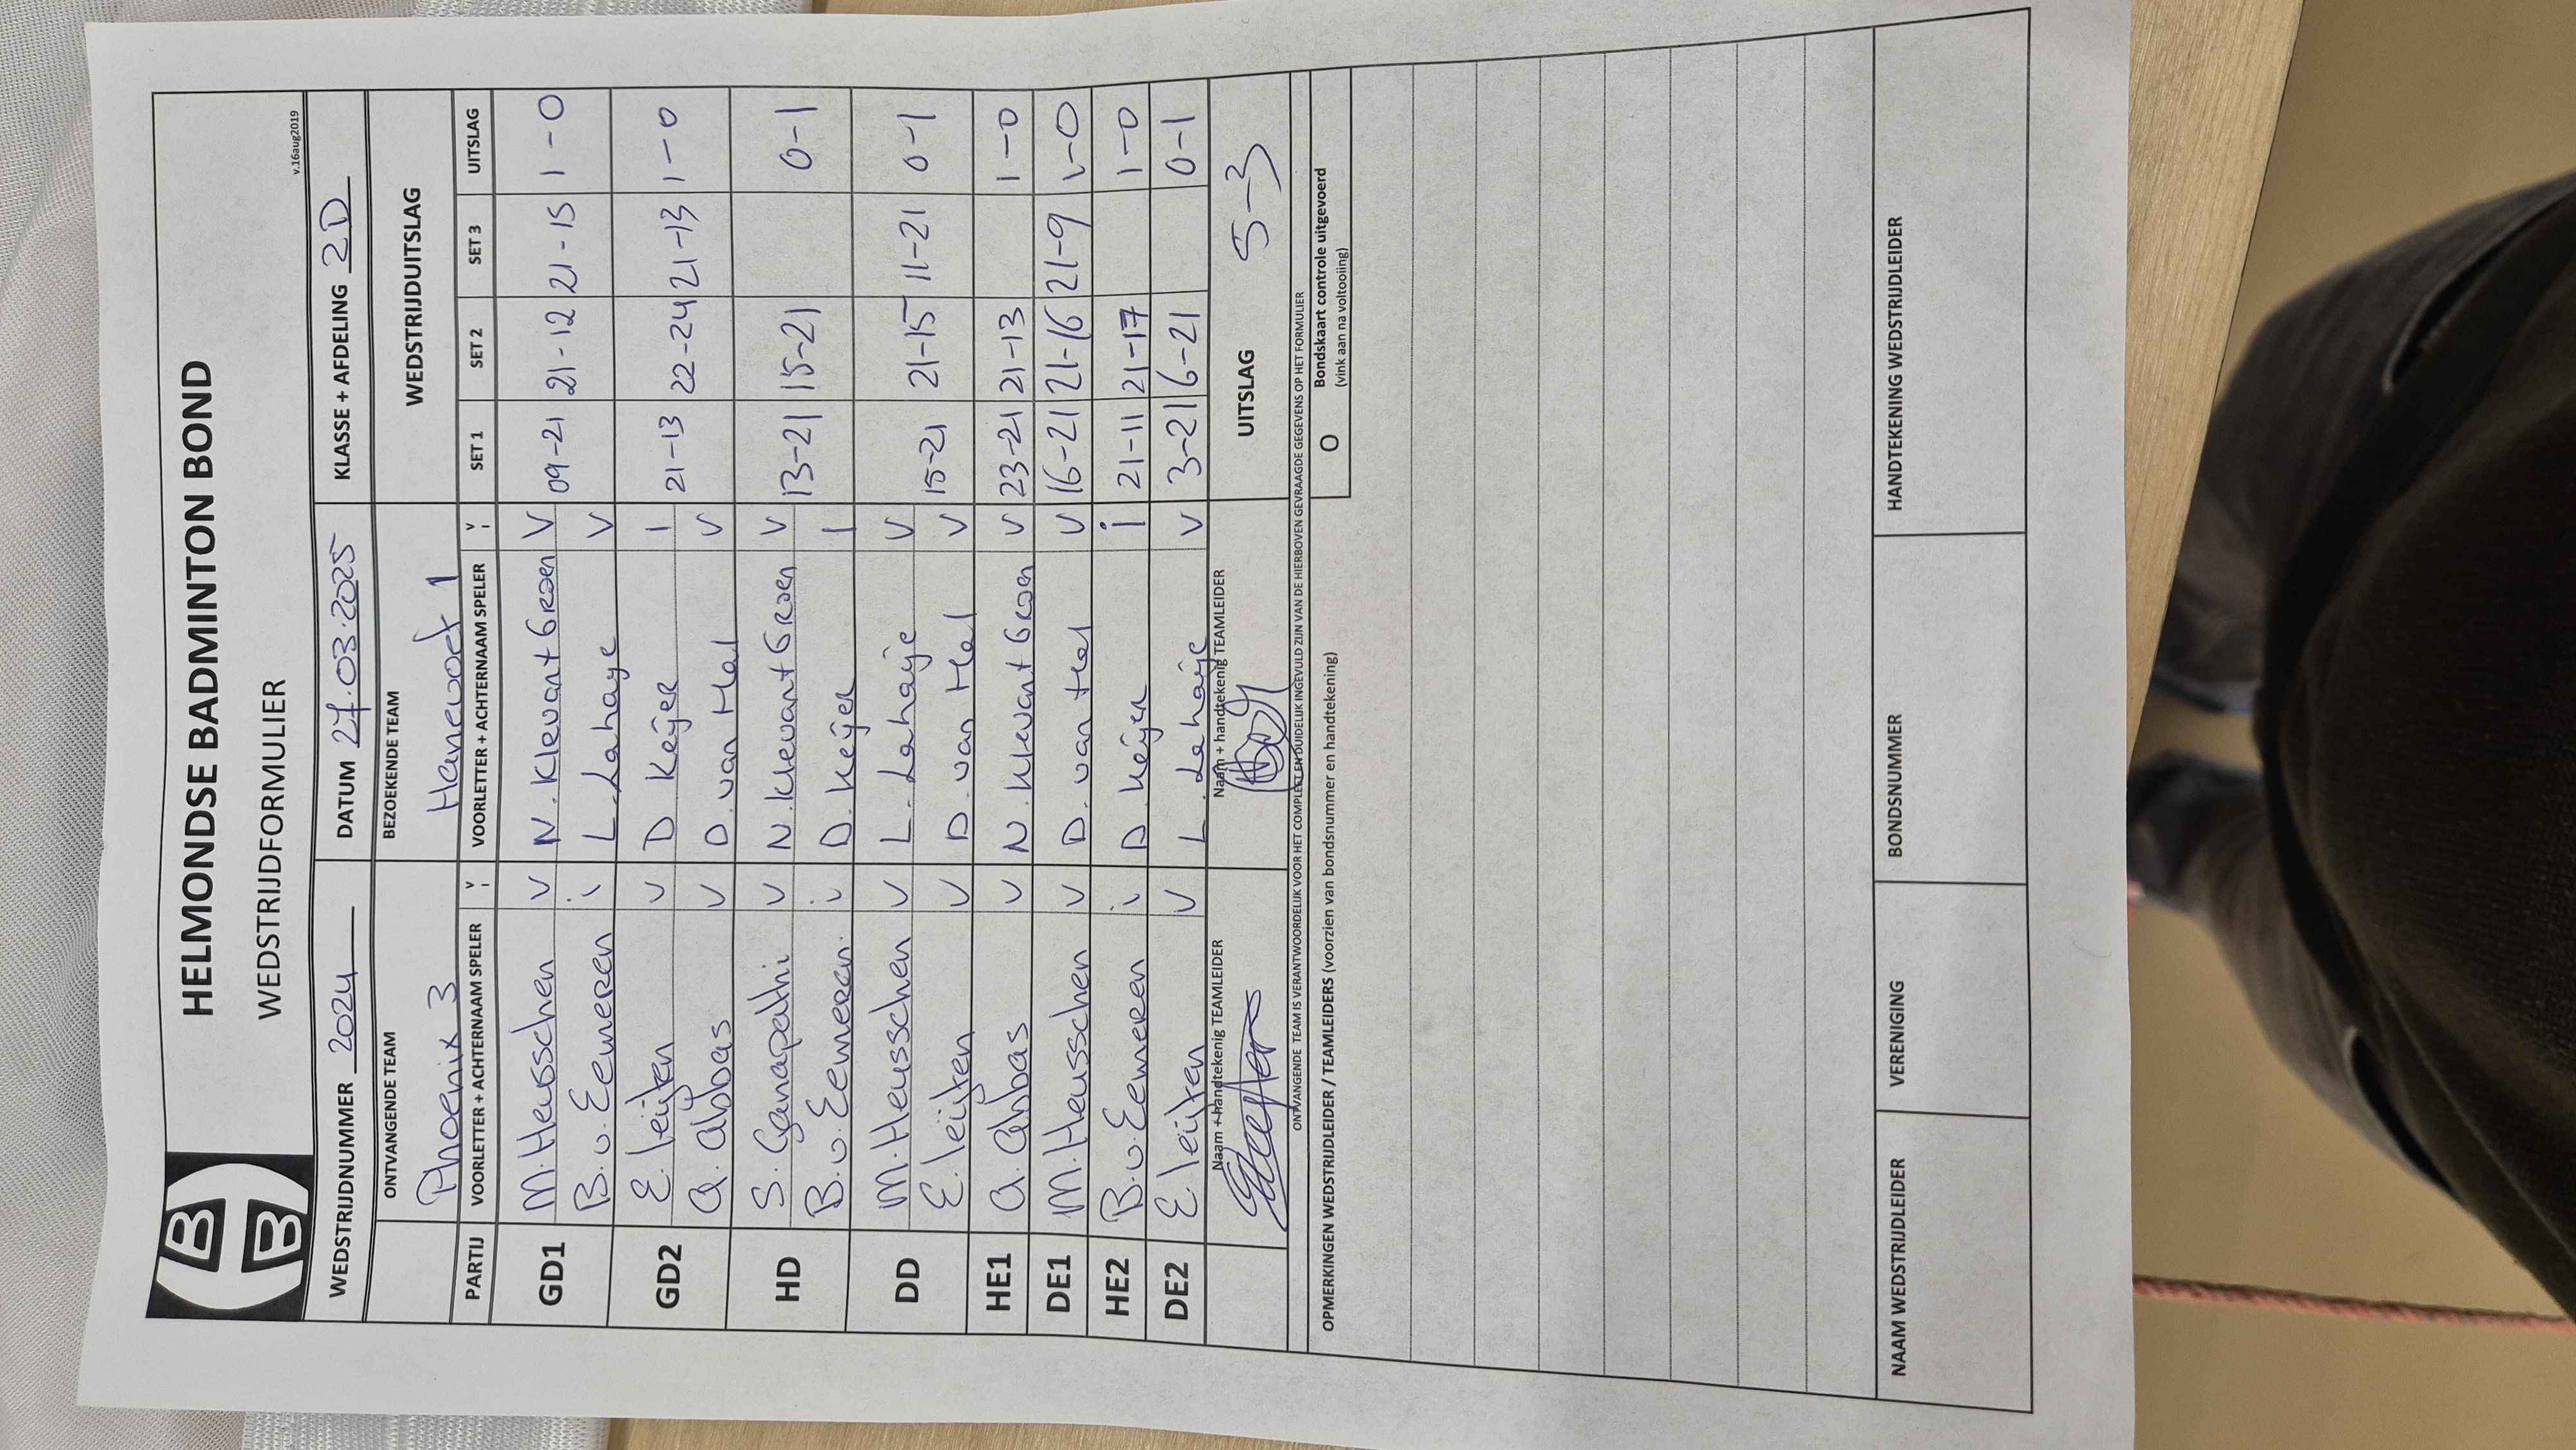 HELMONDSE BADMINTON BOND
WEDSTRIJDFORMULIER
v.16aug2019
WEDSTRIJDNUMMER 2024 DATUM 27.03.2025 KLASSE + AFDELING 2D
ONTVANGENDE TEAM BEZOEKENDE TEAM WEDSTRIJDUITSLAG
Phoenix 3 Hanevoet 1
PARTIJ VOORLETTER + ACHTERNAAM SPELER V I VOORLETTER + ACHTERNAAM SPELER V I SET 1 SET 2 SET 3 UITSLAG
GD1 M. Heusschen v N. Klevant Groen V 09-21 21-12 21-15 1-0
B. v. Eemeren i L. Lahaye V
GD2 E. leijten v D Keijer I 21-13 22-24 21-13 1-0
Q. abbas v D. van Hal v
HD S. Ganapathi v N. Klevant Groen V 13-21 15-21 0-1
B. v. Eemeren. i D. Keijer I
DD M. Heusschen v L. Lahaije V 15-21 21-15 11-21 0-1
E. leijten v D. van Hal V
HE1 Q. abbas v N. Klevant Groen v 23-21 21-13 1-0
DE1 M. Heusschen v D. van Hal v 16-21 21-16 21-9 1-0
HE2 B. v. Eemeren i D. Keijer i 21-11 21-17 1-0
DE2 E. leijten v L. Lahaije v 3-21 6-21 0-1
Naam + handtekenig TEAMLEIDER Naam + handtekenig TEAMLEIDER UITSLAG 5-3
ONTVANGENDE TEAM IS VERANTWOORDELIJK VOOR HET COMPLEET EN DUIDELIJK INGEVULD ZIJN VAN DE HIERBOVEN GEVRAAGDE GEGEVENS OP HET FORMULIER
OPMERKINGEN WEDSTRIJDLEIDER / TEAMLEIDERS (voorzien van bondsnummer en handtekening) O Bondskaart controle uitgevoerd
(vink aan na voltooiing)
NAAM WEDSTRIJDLEIDER VERENIGING BONDSNUMMER HANDTEKENING WEDSTRIJDLEIDER